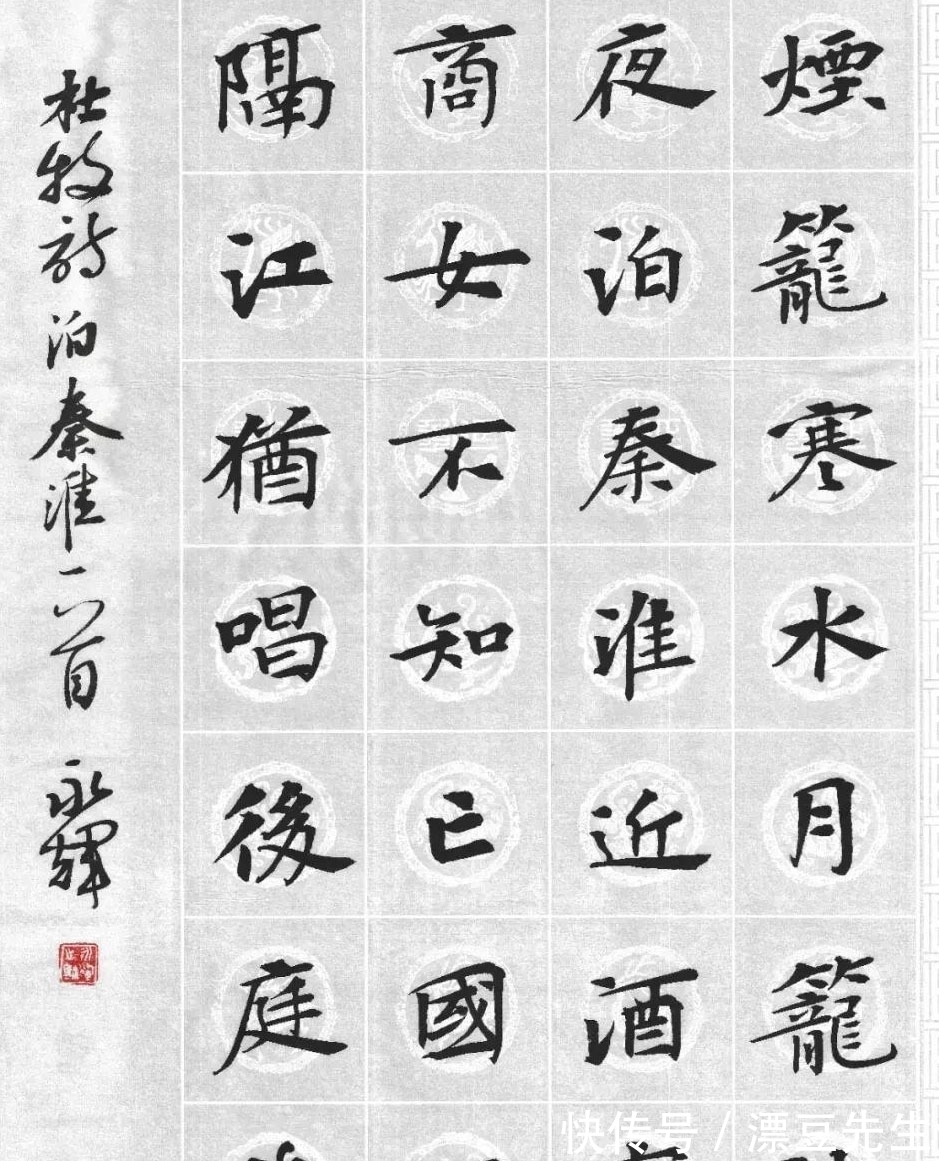 煙籠寒水月籠
夜泊秦淮近酒
商女不知亡國
隔江猶唱後庭
杜牧詩泊秦淮一首 永輝
快传号 / 漂豆先生